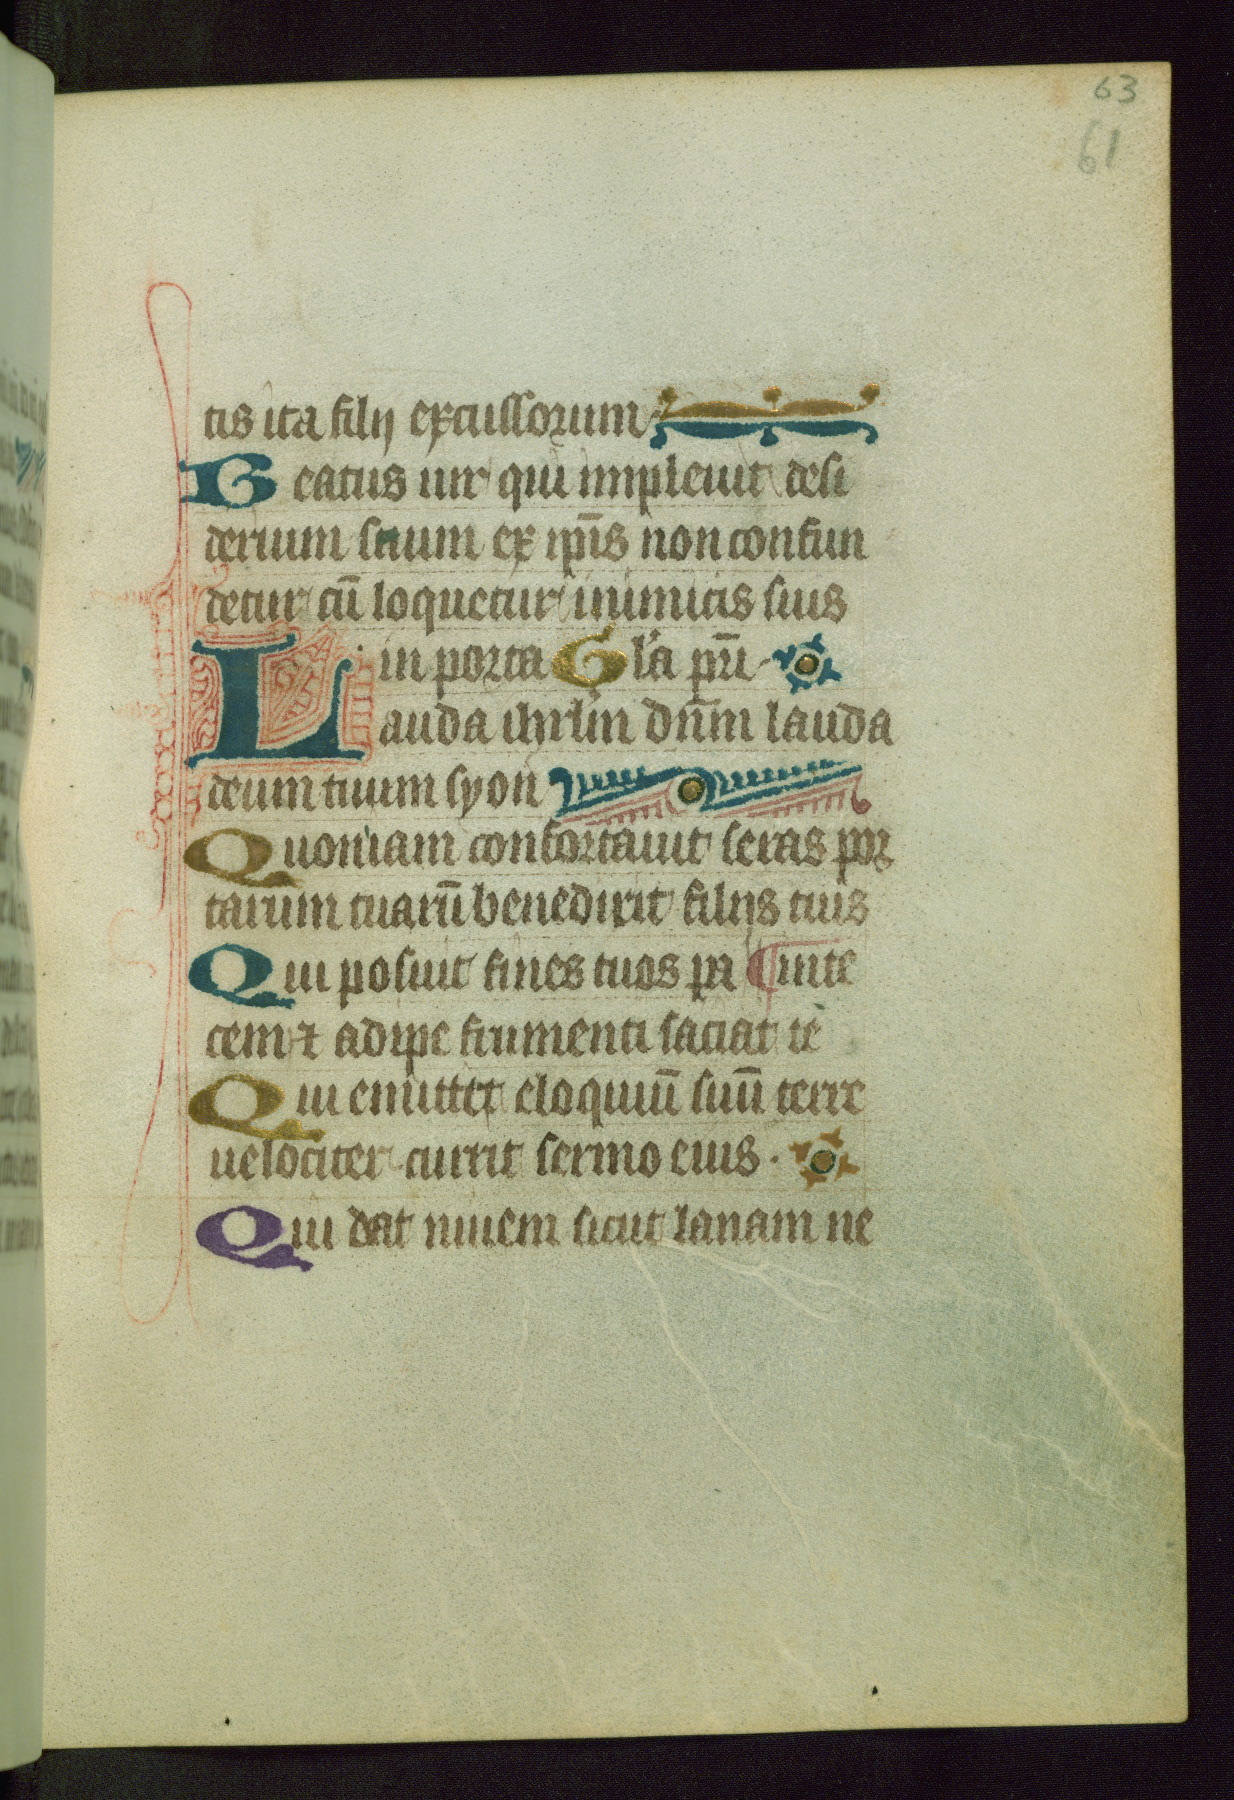 63
61
tis ita filij excussorum
Beatus uir qui impleuit desi
derium suum ex ip̄is non confun
detur cū loquetur inimicis suis
in porta Gl'a pr̄i
Lauda ihrl'm dn̄m lauda
deum tuum syon
Quoniam confortauit seras por
tarum tuarū benedixit filijs tuis
Qui posuit fines tuos pa ¶ in te
cem ⁊ adipe frumenti saciat te
Qui emittit eloquiū suū terre
uelociter currit sermo eius ·
Qui dat niuem sicut lanam ne